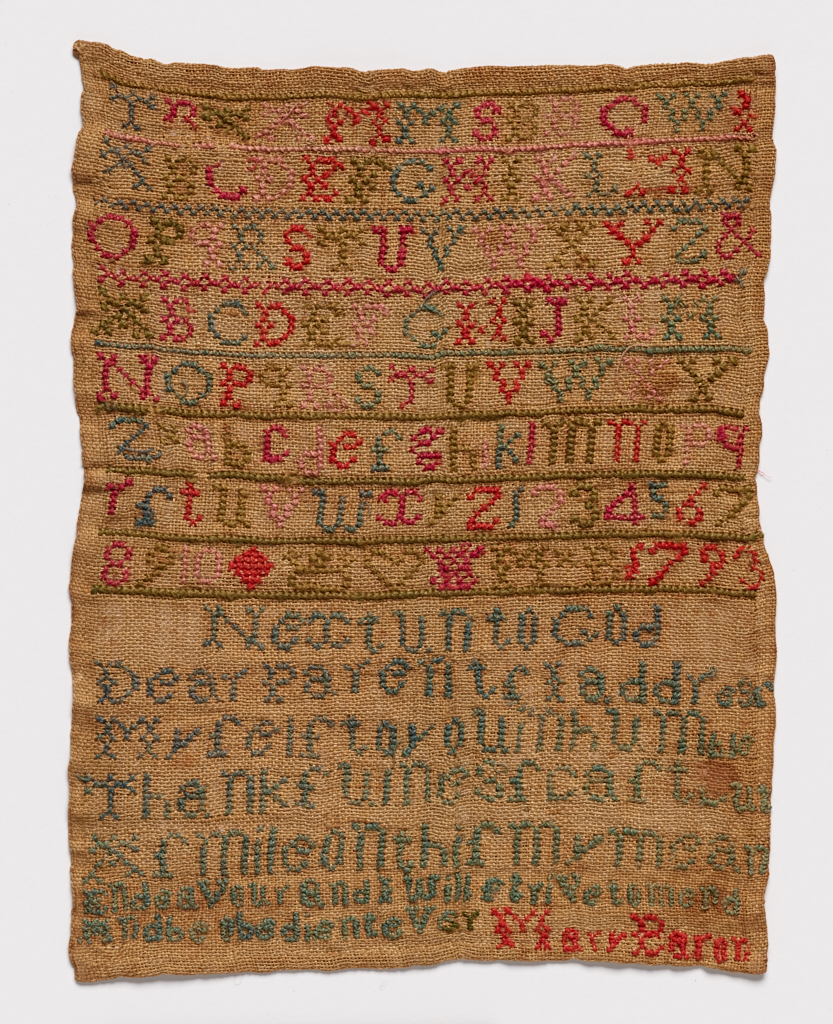 T A A A M M S B B C W
A B C D E F G H I K L M N
O P Q R S T U V W X Y Z &
A B C D E F G H I J K L M
N O P Q R S T U V W X Y
Z a b c d e f g h i k l m n o p q
r ſ t u v w x y z 1 2 3 4 5 6 7
8 9 10 1793
Next un to God
Dear Parentſ I addreſ
My ſelf to you in hUm
Thankfulneſ caſt
A ſmile on thiſ my mean
Endeavour and I Will ſtrive to mend
and be obedient ever Mary Baron